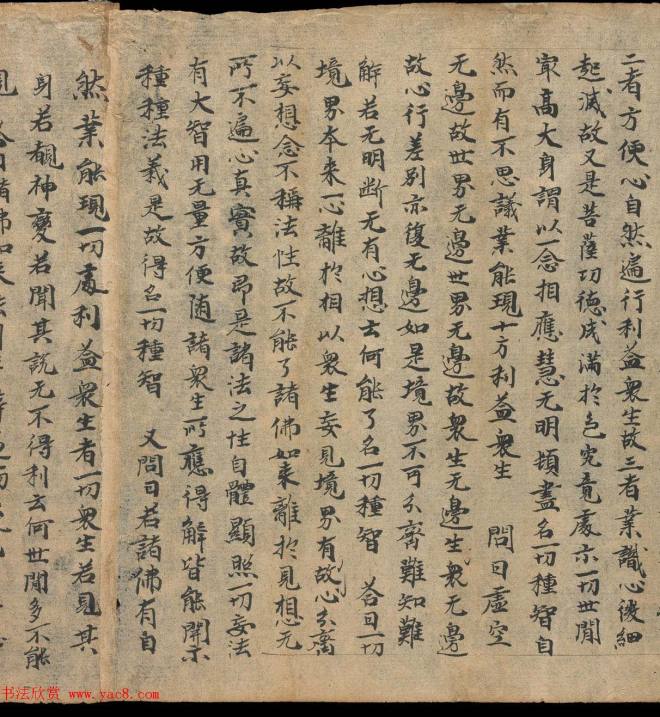 二者方便心自然遍行利益衆生故三者業識心微細
起滅故又是菩薩功德成滿於色究竟處示一切世間
冣高大身謂以一念相應慧无明頓盡名一切種智自
然而有不思議業能現十方利益衆生 問曰虛空
无邊故世界无邊世界无邊故衆生无邊生衆无邊
故心行差別亦復无邊如是境界不可分齊難知難
解若无明斷无有心想云何能了名一切種智 答曰一切
境界本来一心離於相以衆生妄見境界有故心分齊
以妄想念不稱法性故不能了諸佛如来離於見想无
所不遍心真實故即是諸法之性自體顯照一切妄法
有大智用无量方便随諸衆生所應得解皆能開示
種種法義是故得名一切種智 又問曰若諸佛有自
然業能現一切處利益衆生者一切衆生若見其
身若覩神變若聞其説无不得利云何世間多不能
見 答曰諸佛如来法
书法欣赏 www.yac8.com